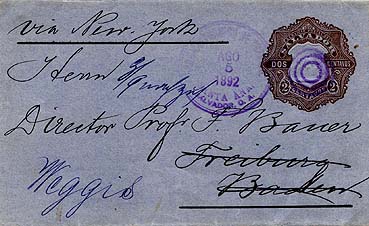 via New-York
AGO
5
1892
SANTA ANA
SALVADOR, C. A.
DOS
CENTAVOS
2
2
Herrn
Director Profr J. Bauer
Freiburg
Baden
Weggis